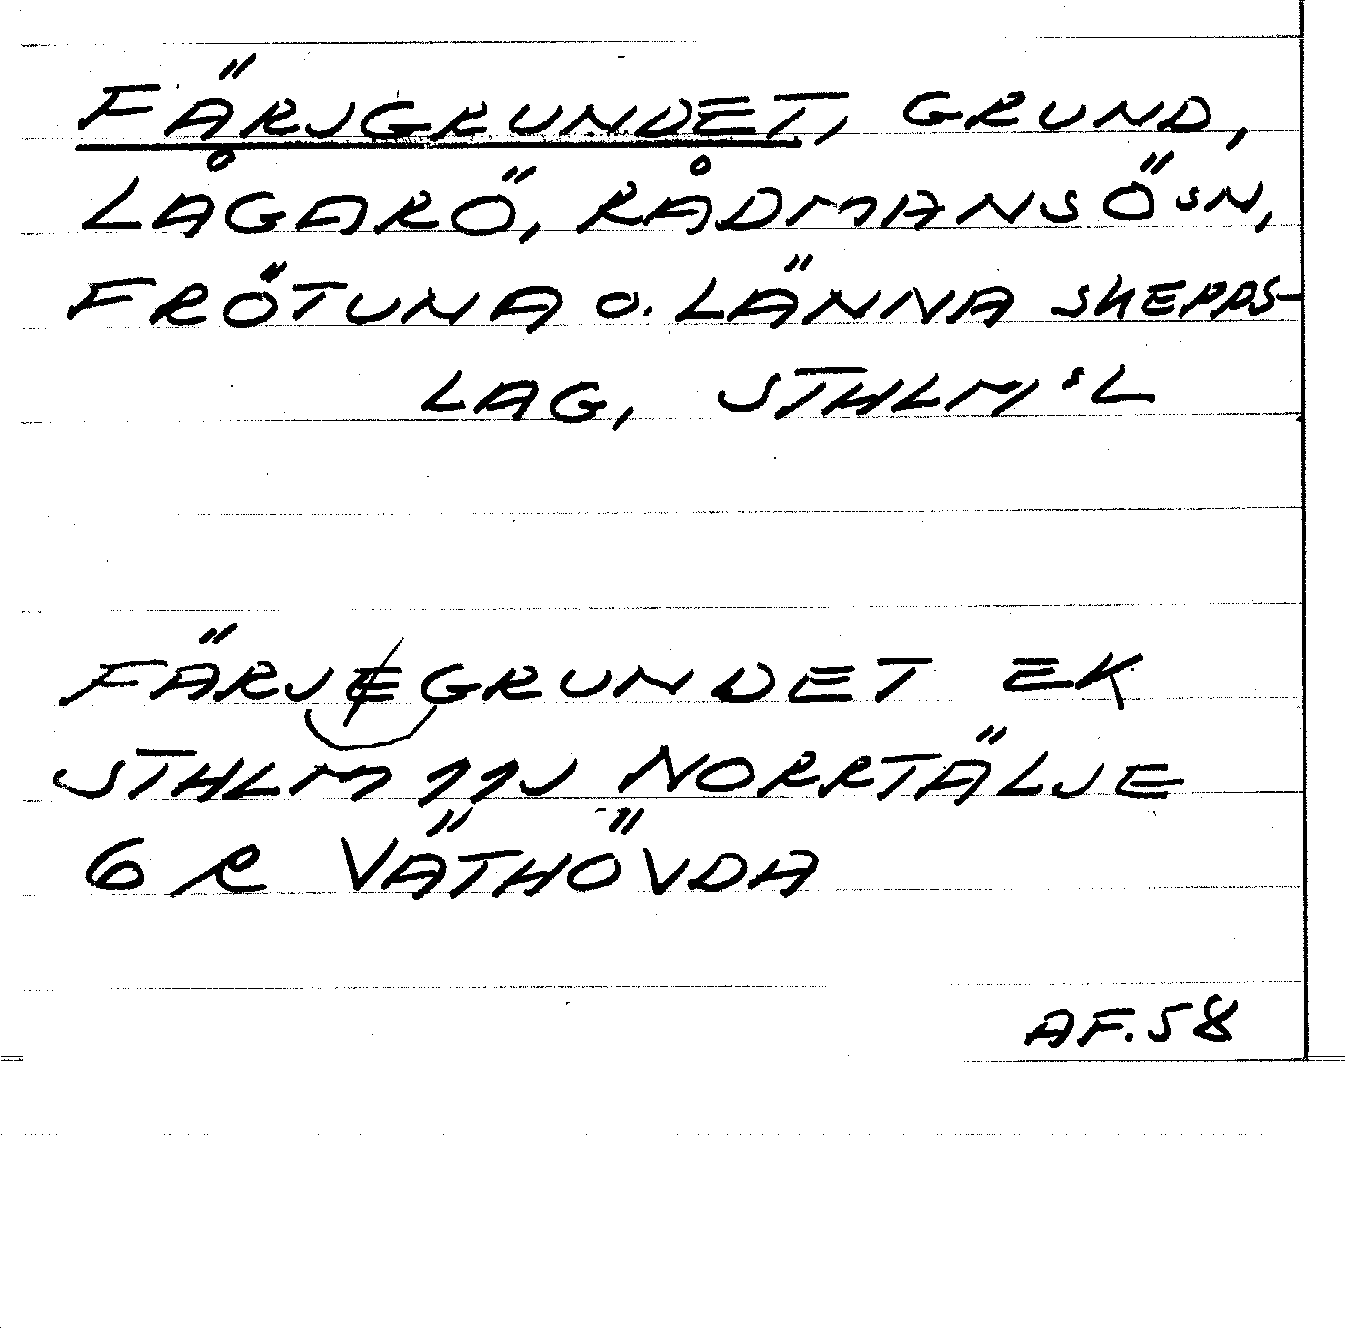 FÄRJGRUNDET, GRUND,
LÅGARÖ, RÅDMANSÖ SN,
FRÖTUNA O. LÄNNA SKEPPS-
LAG, STHLMS L
FÄRJEGRUNDET EK
STHLM 11J NORRTÄLJE
6 R VÄTHÖVDA
AF. 58